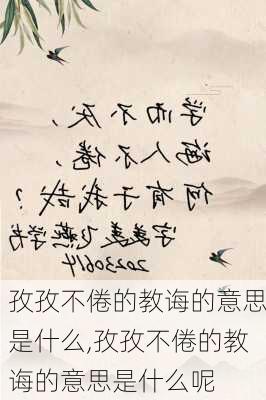 学而不厌，
诲人不倦，
何有于我哉？
飞燕学书
20230614
孜孜不倦的教诲的意思
是什么,孜孜不倦的教
诲的意思是什么呢